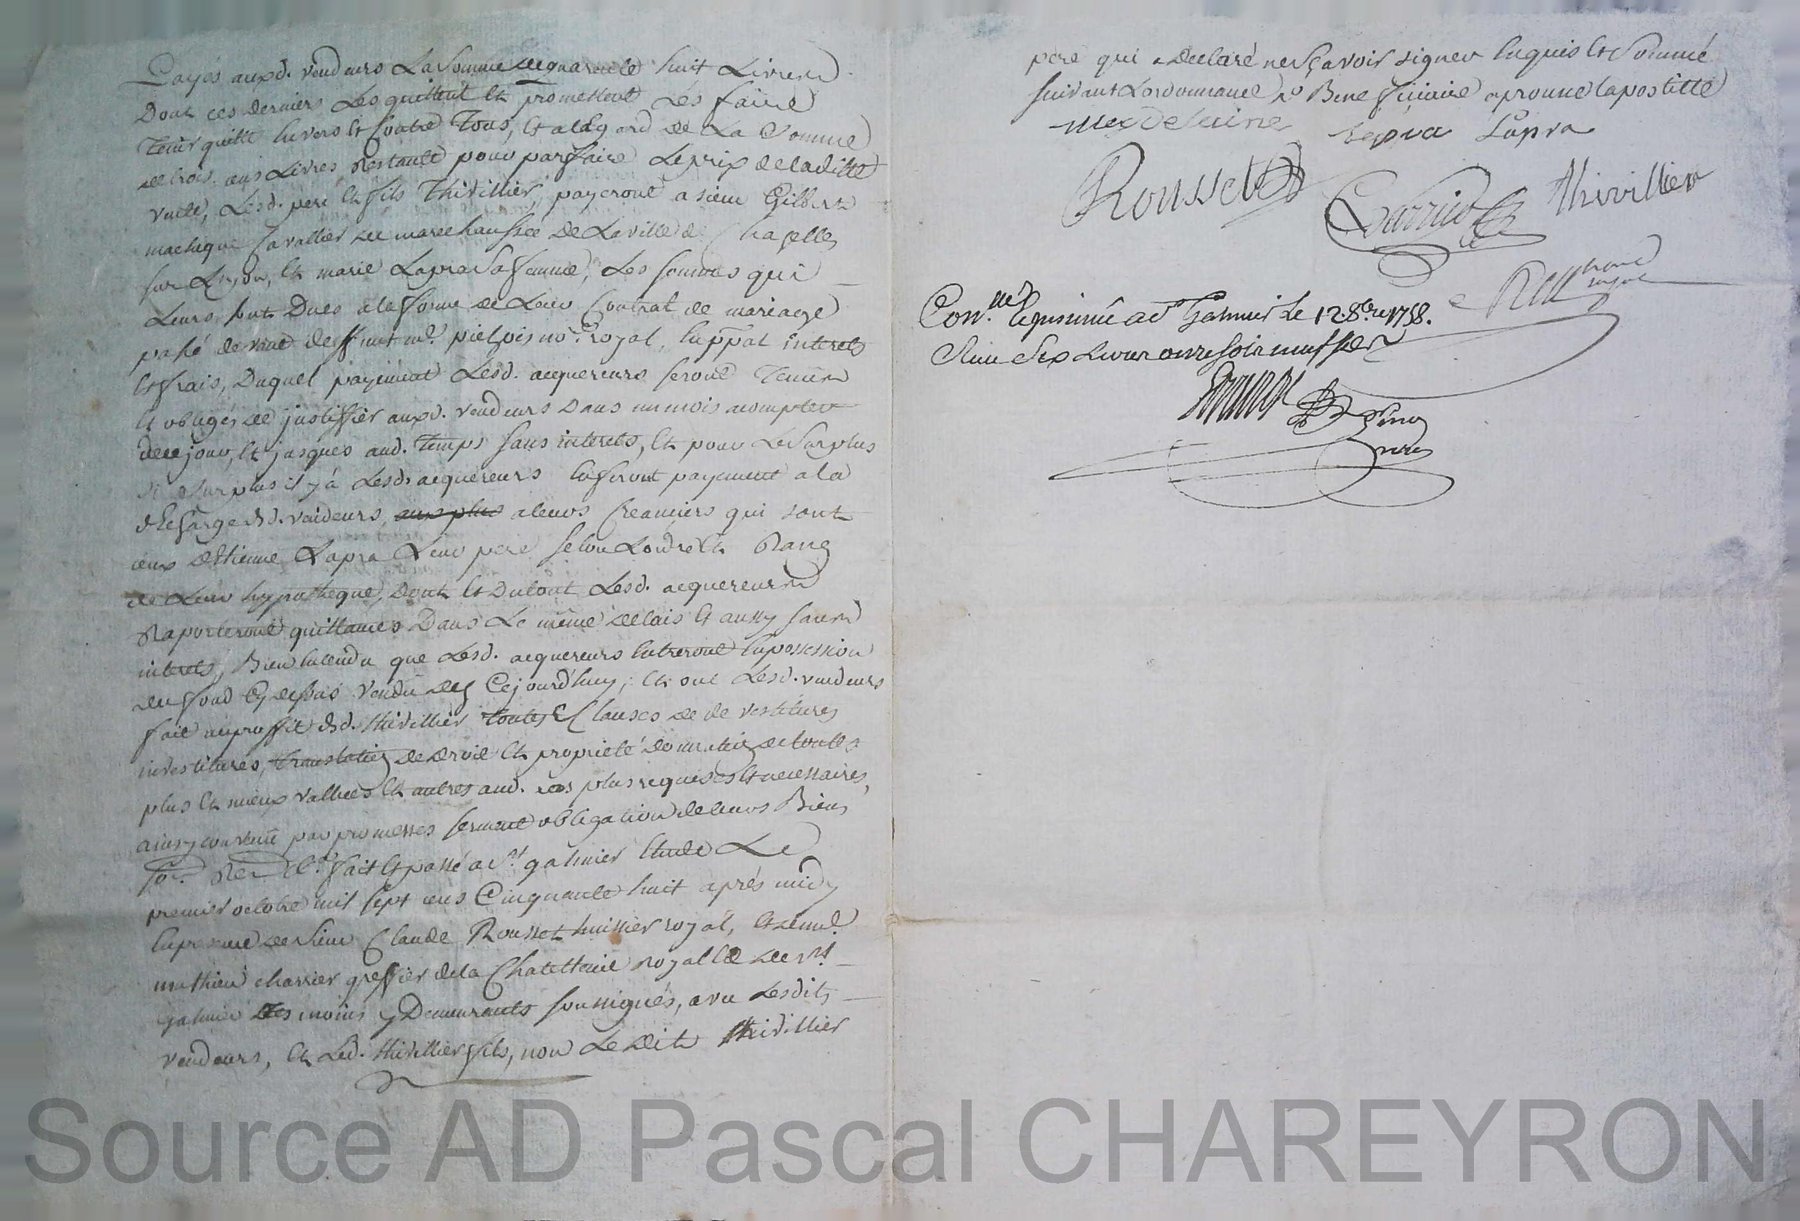 Payés auxd. vendeurs La somme de quarante huit Livres
Dont ces derniers Les quittent et promettent Les faire
Tenir quitte envers et contre Tous, et a légard de La Somme
de trois cens Livres Restante pour parfaire Le prix de laditte
vente, Lesd. pere et fils Thivillier, payeront a sieur Gilbert
Cavallier de marechaussée de La ville de Chazelles
sur Lyon, et marie Lapra Sa femme, Les sommes qui
Leurs sont Dues a la forme de Leur Contrat de mariage
passé devant deffunt me. no.re royal, en ppal interets
et frais, Duquel payement Lesd. acquereurs seront Tenus
et obligés de justiffier auxd. vendeurs Dans un mois a compter
de ce jour, et jusques aud. Temps sans interets, et pour Le Surplus
si Surplus il y à Lesd. acquereurs en feront payement a la
déCharge desd. vendeurs, aux plus a leurs Creanciers qui sont
ceux d'Etienne Lapra Leur pere selon Lordre et Rang
de Leur hypotheque, Dont et Du tout Lesd. acquereurs
Raporteront quittances Dans Le même delais et aussy sans
interets, Bien Entendu que Lesd. acquereurs Entreront En possession
du fond Cy dessus vendu dez Cejourd'huy; et ont Lesd. vendeurs
fait au proffit desd. thivillier toutes Clauses de devestitures
investitures, Translation de droit et proprieté de
plus et mieux vallües et autres aud. cas plus requises et necessaires
ainsy convenü par promesses serment obligation de leurs Biens
fait et passé a St. galmier Etude Le
premier octobre mil sept cens Cinquante huit après midy
En presence de sieur Claude Rousset huissier royal, et
mathieu charrier greffier de la Chatellenie Royalle de St.
galmier Tesmoins y Demeurants soussignés, avec Lesdits
vendeurs, et Led. thivillier fils, non Le dit thivillier
pere qui a Declaré ne sçavoir signer Enquis et Sommé
suivant Lordonnance approuvé lapostille
Lapra Lapra
Rousset
Charrier
thivillier
Con.llé Et a St. Galmier le 12 8bre 1758.
Source AD Pascal CHAREYRON